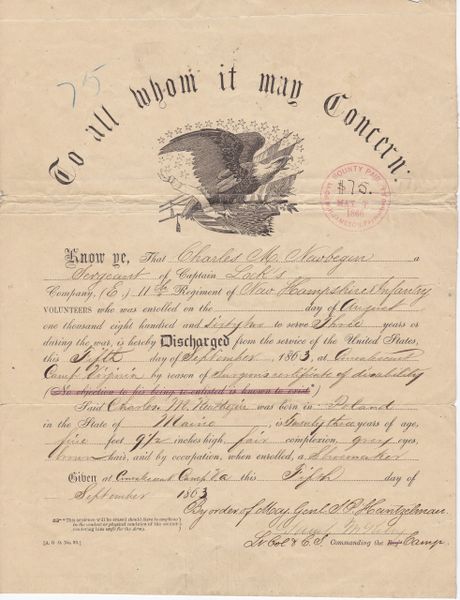 75
To all whom it may Concern:
BOUNTY PAID
$75.
MAY 7
1866
Know ye, That Charles M. Newbegin a
Sergeant of Captain Lock's
Company, (E.) 11th Regiment of New Hampshire Infantry
VOLUNTEERS who was enrolled on the day of August
one thousand eight hundred and sixty two to serve Three years or
during the war, is hereby Discharged from the service of the United States,
this Fifth day of September, 1863, at Convalescent
Camp Virginia by reason of Surgeons certificate of disability
(No objection to his being re-enlisted is known to exist*)
Said Charles M. Newbegin was born in Poland
in the State of Maine, is Twenty three years of age,
five feet 9 1/2 inches high, fair complexion, gray eyes,
brown hair, and by occupation, when enrolled, a Shoemaker
Given at Convalescent Camp Va this Fifth day of
September 1863
By order of Maj. Genl. S. P. Heintzelman.
Lt. Col & C. S. Commanding the Reg't Camp.
*This sentence will be erased should there be anything
in the conduct or physical condition of the soldier
rendering him unfit for the Army.
[A. G. O. No. 99.]